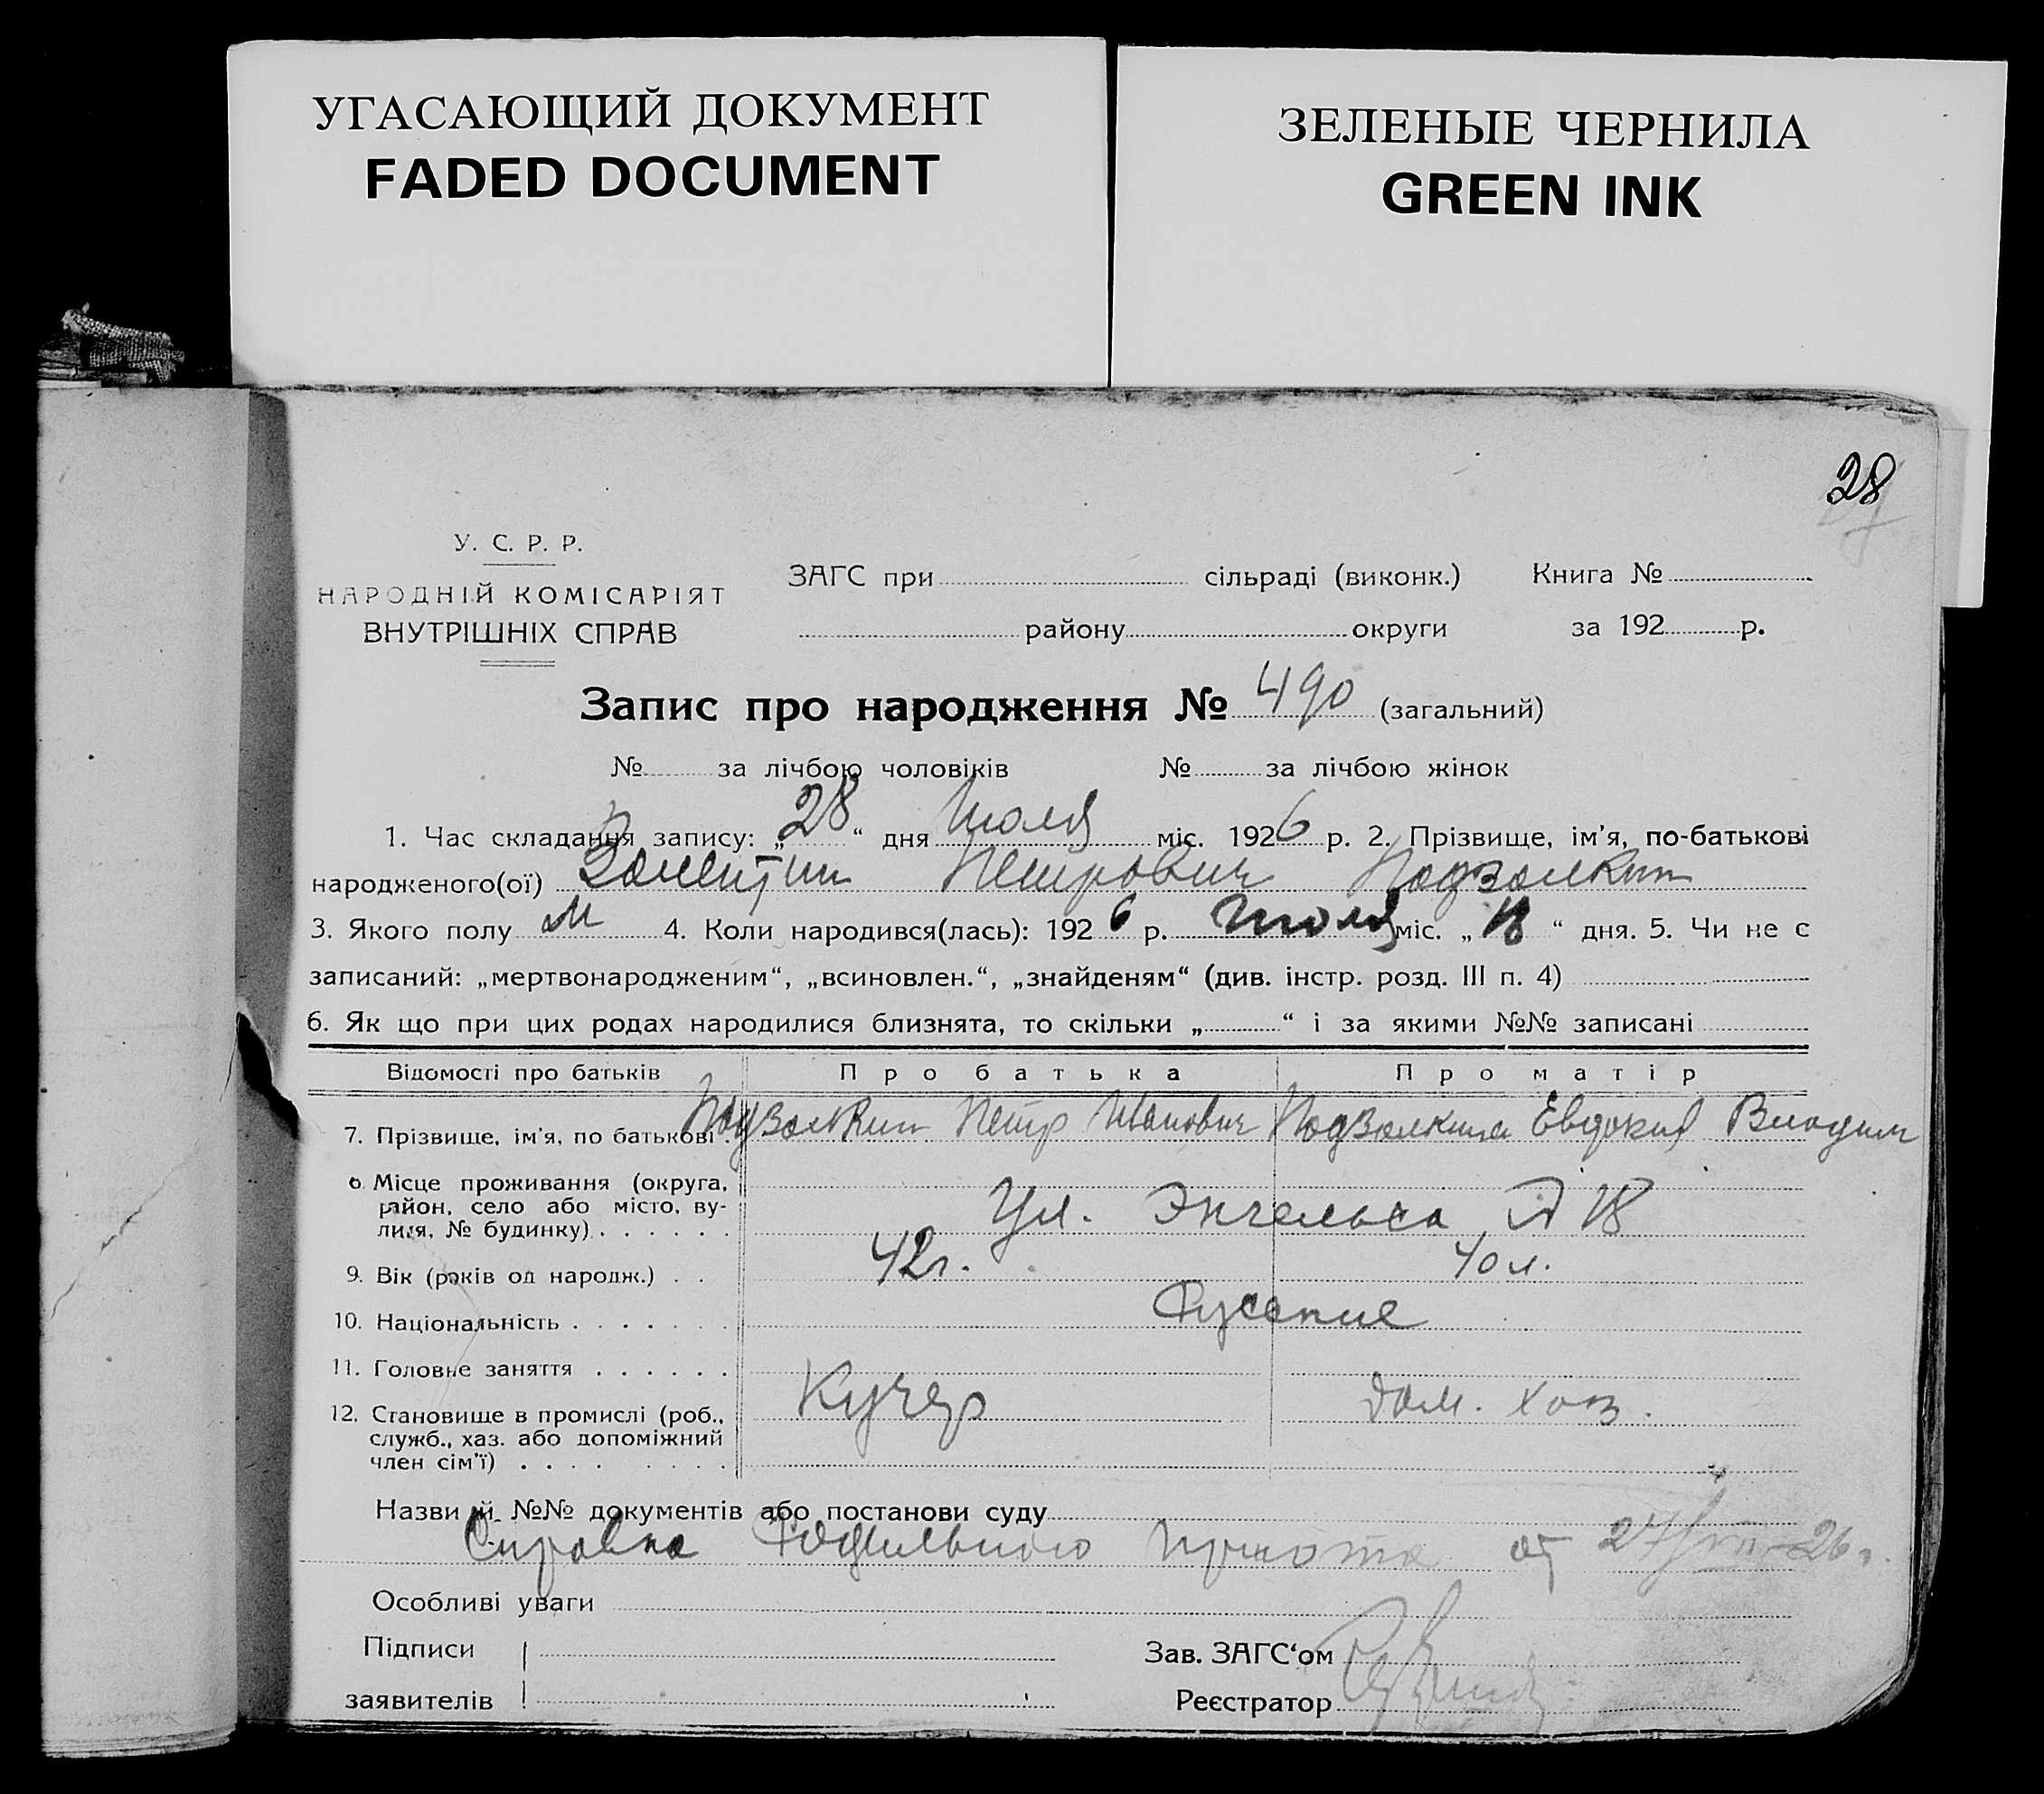 УГАСАЮЩИЙ ДОКУМЕНТ
FADED DOCUMENT
ЗЕЛЕНЫЕ ЧЕРНИЛА
GREEN INK
28
У. С. Р. Р.
НАРОДНІЙ КОМІСАРІЯТ
ВНУТРІШНІХ СПРАВ
ЗАГС при сільраді (виконк.) Книга №
району округи за 192 р.
Запис про народження № 490 (загальний)
№ за лічбою чоловіків № за лічбою жінок
1. Час складання запису: „28“ дня Июля міс. 1926 р. 2. Прізвище, ім’я, по-батькові
народженого(ої) Валентин Петрович Подзолкин
3. Якого полу м 4. Коли народився(лась): 1926 р. Июля міс. „18“ дня. 5. Чи не є
записаний: „мертвонародженим“, „всиновлен.“, „знайденям“ (див. інстр. розд. III п. 4)
6. Як що при цих родах народилися близнята, то скільки „ “ і за якими №№ записані
Відомості про батьків Про батька Про матір
7. Прізвище, ім’я, по батькові Подзолкин Петр Иванович Подзолкина Евдокия Владим
8. Місце проживання (округа,
район, село або місто, ву-
лиця, № будинку) Ул. Энгельса Д 18
9. Вік (років од народж.) 42г. 40 л.
10. Національність Русские
11. Головне заняття
Кучер дом. хоз.
12. Становище в промислі (роб.,
служб., хаз. або допоміжний
член сім’ї)
Назви й №№ документів або постанови суду
Справка Родильного приюта от 27/VII-26 г.
Особливі уваги
Підписи
заявителів
Зав. ЗАГС‘ом
Реєстратор